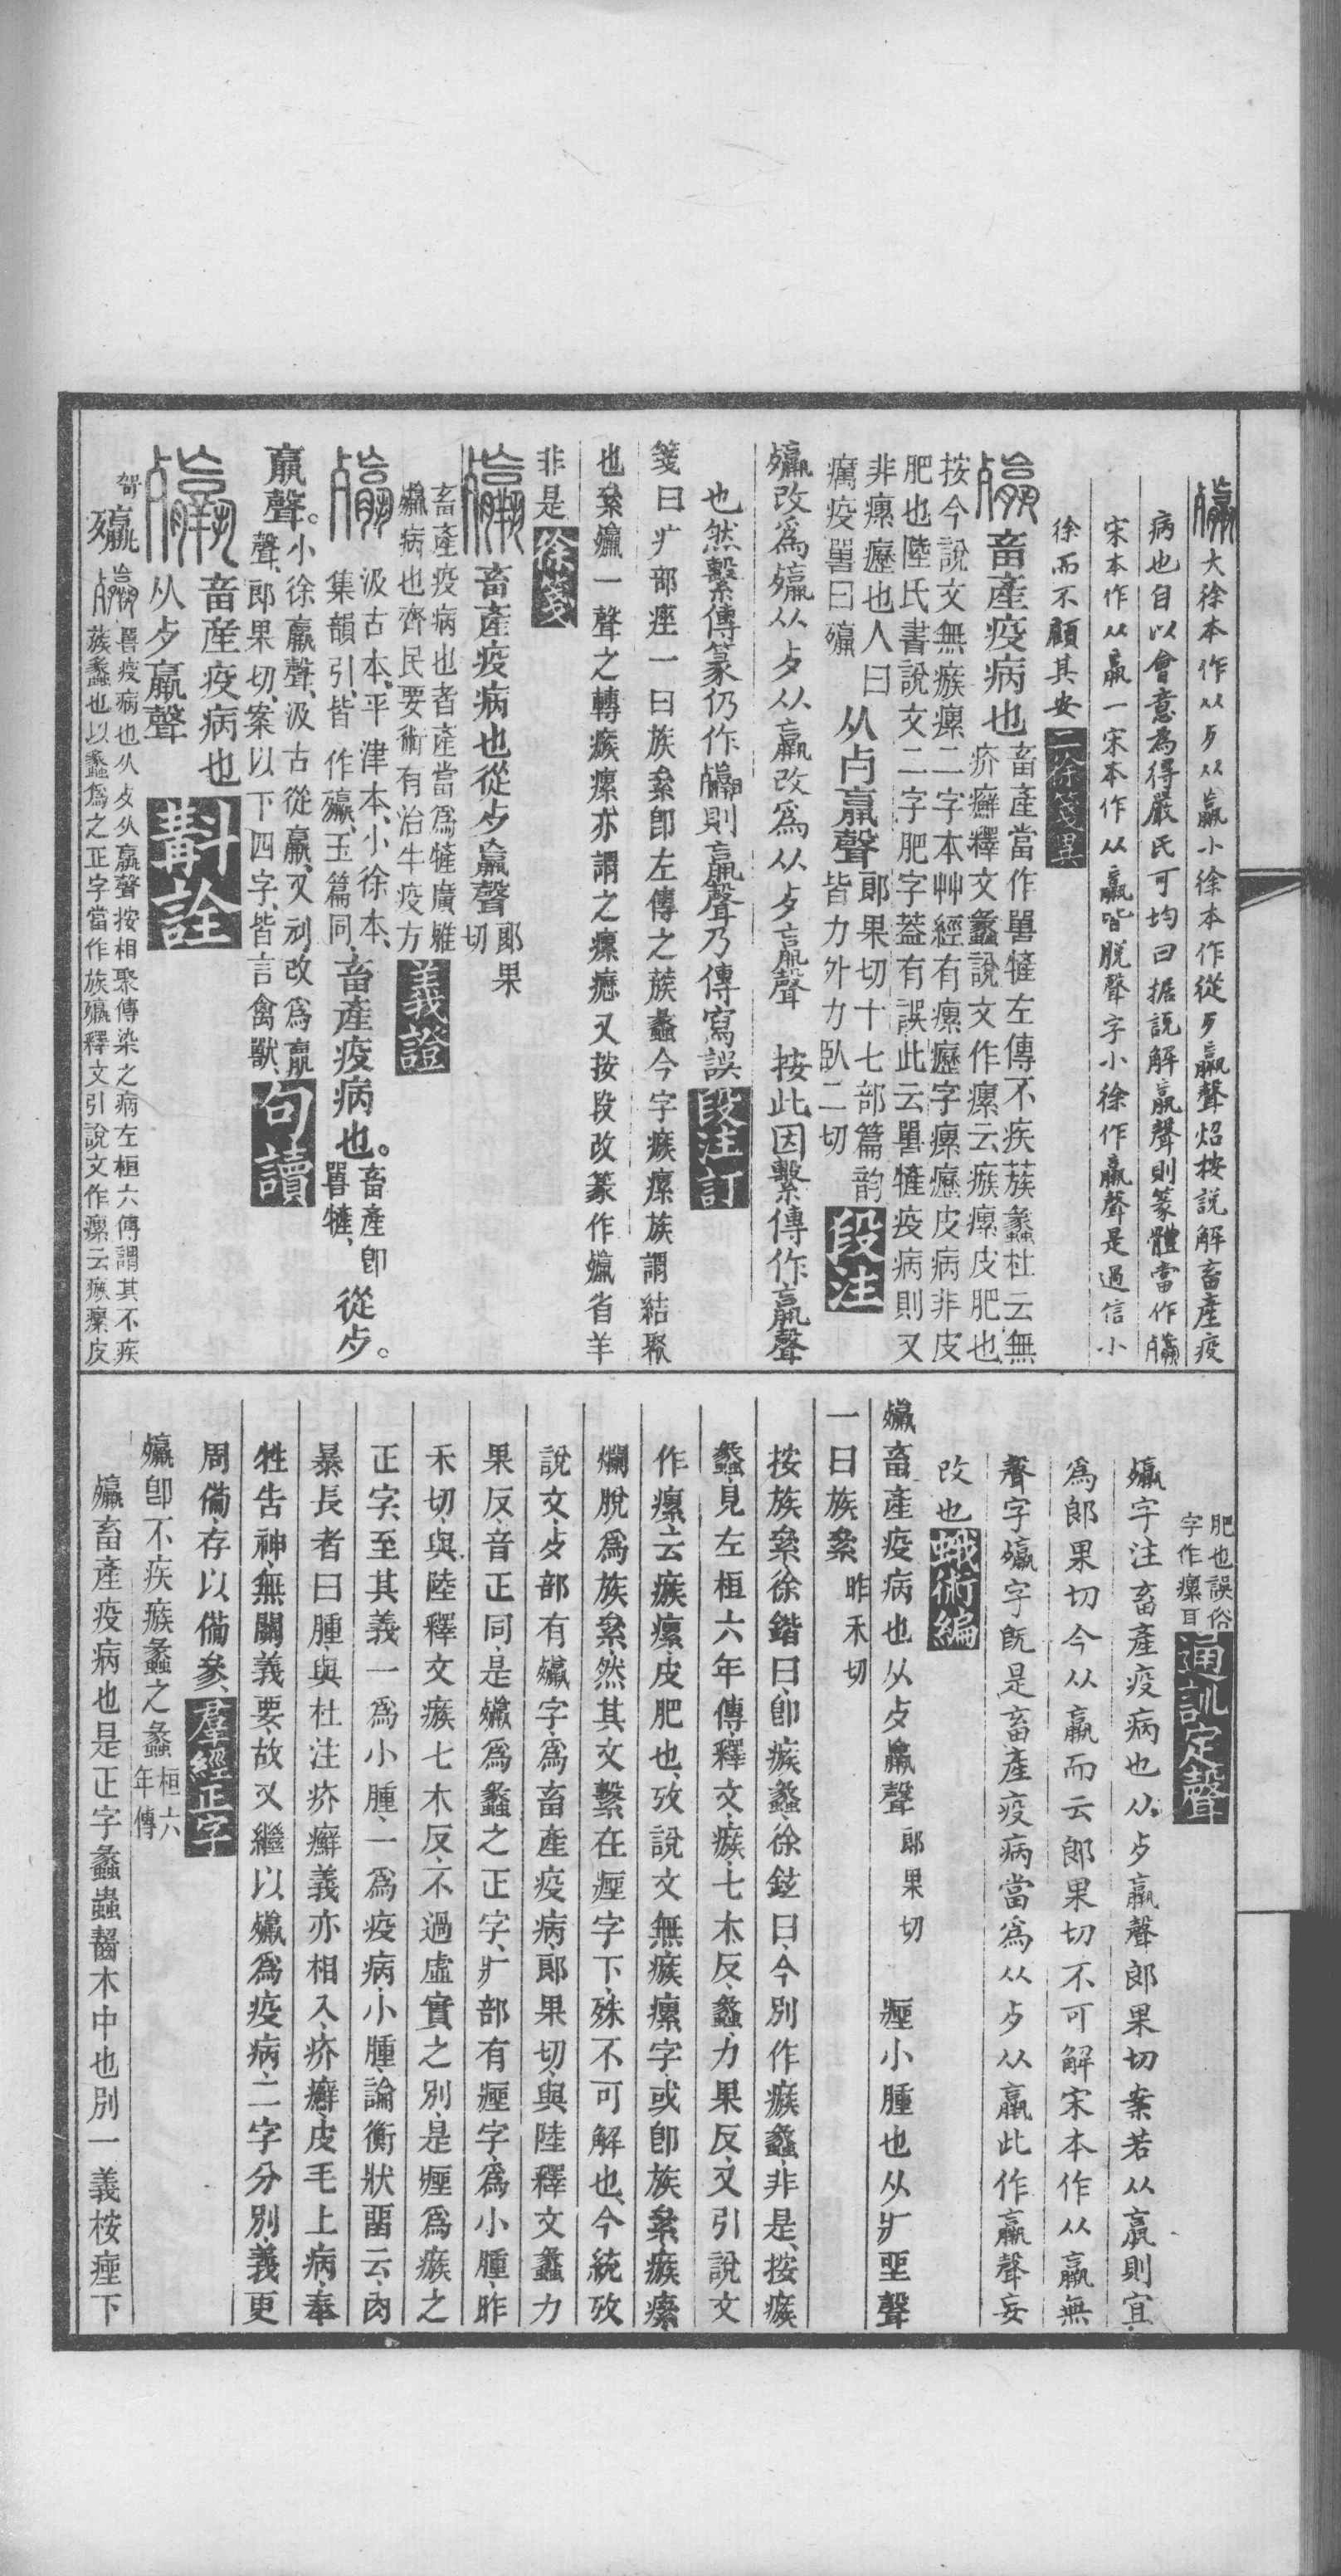 大徐本作从歺从羸小徐本作從歺羸聲炤按說解畜產疫
病也自以會意為得嚴氏可均曰据說解羸聲則篆體當作
宋本作从羸一宋本作从羸皆脫聲字小徐作羸聲是過信小
徐而不顧其安二徐箋異
畜產疫病也畜產當作嘼㹌左傳不疾蔟蠡杜云無
疥癬釋文蠡說文作瘰云瘯瘰皮肥也
按今說文無瘯瘰二字本艸經有瘰癧字瘰癧皮病非皮
肥也陸氏書說文二字肥字葢有誤此云嘼㹌疫病則又
非瘰癧也人曰
癘疫嘼曰㱻从歺羸聲郎果切十七部篇韵
皆力外力臥二切段注
㱻改爲㱻从歺从羸改爲从歺羸聲 按此因繫傳作羸聲
也然繫傳篆仍作則羸聲乃傳寫誤段注訂
箋曰疒部痤一曰族絫卽左傳之蔟蠡今字瘯瘰族謂結聚
也絫㱻一聲之轉瘯瘰亦謂之瘰癧又按段改篆作㱻省羊
非是徐箋
畜產疫病也從歺羸聲郎果
切
畜產疫病也者產當爲㹌廣雅
㱻病也齊民要術有治牛疫方義證
汲古本平津本小徐本
集韻引皆作㱻玉篇同畜產疫病也。畜產卽
嘼㹌、從歺。
羸聲。小徐羸聲、汲古從羸、又剜改爲羸
聲、郎果切、案以下四字、皆言禽獸句讀
畜産疫病也
从歺羸聲斠詮
嘼疫病也从歺从羸聲按相聚傳染之病左桓六傳謂其不疾
蔟蠡也以蠡爲之正字當作族㱻釋文引說文作瘰云瘯瘰皮
肥也誤俗
字作瘰耳通訓定聲
㱻字注畜產疫病也从歺羸聲郎果切案若从羸則宜
爲郎果切今从羸而云郎果切不可解宋本作从羸無
聲字㱻字旣是畜產疫病當爲从歺从羸此作羸聲妄
改也蛾術編
㱻畜產疫病也从歺羸聲郎果切 痤小腫也从疒坐聲
一曰族絫昨禾切
按族絫徐鍇曰卽瘯蠡徐鉉曰今別作瘯蠡非是按瘯
蠡見左桓六年傳釋文瘯七木反蠡力果反又引說文
作瘰云瘯瘰皮肥也攷說文無瘯瘰字或卽族絫瘯瘰
爛脫爲族絫然其文繫在痤字下殊不可解也今統攷
說文歺部有㱻字爲畜產疫病郎果切與陸釋文蠡力
果反音正同是㱻爲蠡之正字疒部有痤字爲小腫昨
禾切與陸釋文瘯七木反不過虛實之別是痤爲瘯之
正字至其義一爲小腫一爲疫病小腫論衡狀畱云肉
暴長者曰腫與杜注疥癬義亦相入疥癬皮毛上病奉
牲告神無關義要故又繼以㱻爲疫病二字分別義更
周備存以備參羣經正字
㱻卽不疾瘯蠡之蠡桓六
年傳
㱻畜產疫病也是正字蠡蟲齧木中也別一義桉痤下